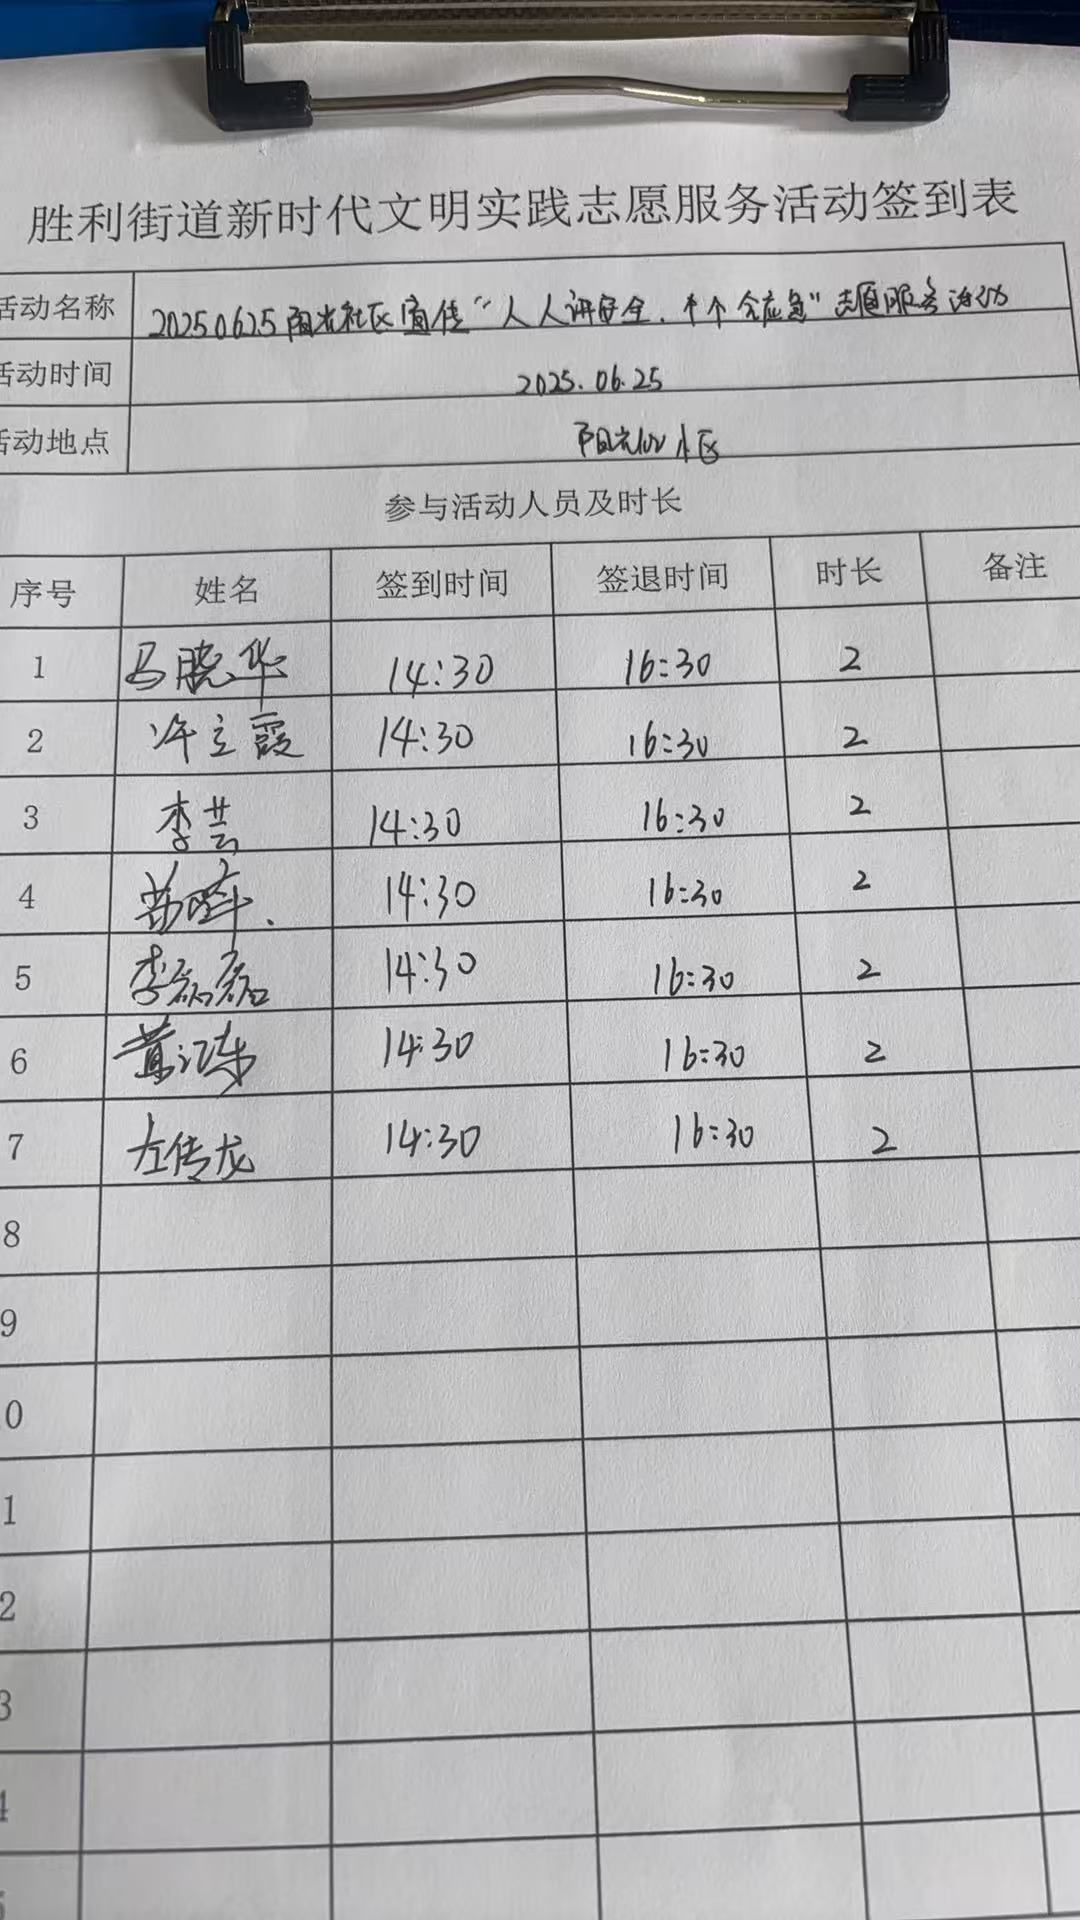 胜利街道新时代文明实践志愿服务活动签到表
活动名称 20250625阳光社区宣传“人人讲安全、个个会应急”志愿服务活动
活动时间 2025.06.25
活动地点 阳光100小区
参与活动人员及时长
序号 姓名 签到时间 签退时间 时长 备注
1 马晓华 14:30 16:30 2
2 许立霞 14:30 16:30 2
3 李芸 14:30 16:30 2
4 14:30 16:30 2
5 李 14:30 16:30 2
6 黄江东 14:30 16:30 2
7 左传龙 14:30 16:30 2
8
9
0
1
2
3
4
5